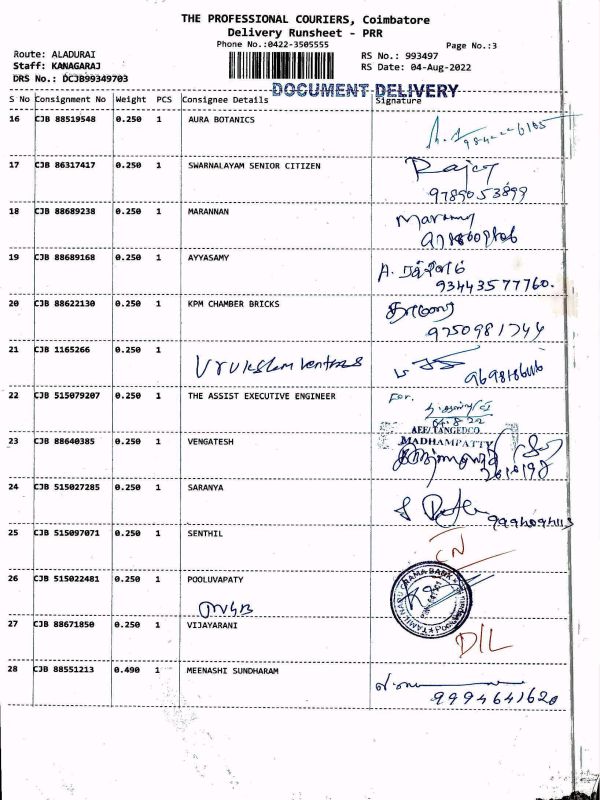 THE PROFESSIONAL COURIERS, Coimbatore
Delivery Runsheet - PRR
Phone No.:0422-3505555
Page No.:3
Route: ALADURAI
Staff: KANAGARAJ
DRS No.: DCJB99349703
RS No.: 993497
RS Date: 04-Aug-2022
DOCUMENT DELIVERY
S No Consignment No Weight PCS Consignee Details Signature
16 CJB 88519548 0.250 1 AURA BOTANICS
17 CJB 86317417 0.250 1 SWARNALAYAM SENIOR CITIZEN
9789053899
18 CJB 88689238 0.250 1 MARANNAN
19 CJB 88689168 0.250 1 AYYASAMY
93443577760.
20 CJB 88622130 0.250 1 KPM CHAMBER BRICKS
9750981744
21 CJB 1165266 0.250 1
22 CJB 515079207 0.250 1 THE ASSIST EXECUTIVE ENGINEER
For.
04.8.22
AEE/TANGEDCO
MADHAMPATTY
23 CJB 88640385 0.250 1 VENGATESH
24 CJB 515027285 0.250 1 SARANYA
25 CJB 515097071 0.250 1 SENTHIL
CN
26 CJB 515022481 0.250 1 POOLUVAPATY
TAMIL NADU GRAMA BANK
27 CJB 88671850 0.250 1 VIJAYARANI
D/L
28 CJB 88551213 0.490 1 MEENASHI SUNDHARAM
9994641620